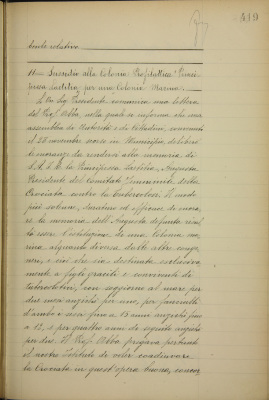 419
tivale relativo.
11mo Sussidio alla Colonia Profilattica "Princi-
pessa Laetitia" per una Colonia Marina.
Il Sig. Presidente comunica una lettera
del Prof. Abba, nella quale si informa che una
assemblea di Autorità e di Cittadini, convenuta
il 28 novembre scorso in Municipio, deliberò
le onoranze da rendere alla memoria di
S.A.I. e R. la Principessa Laetitia, Augusta
Presidente del Comitato Femminile della
Crociata contro la tubercolosi. Il modo
più solenne, duraturo ed efficace di onora-
re la memoria dell'Augusta defunta risul-
tò essere l'istituzione di una Colonia ma-
rina, alquanto diversa dalle altre conge-
neri, e cioè che sia destinata esclusiva-
mente a figli gracili e conviventi di
tubercolotici, con soggiorno al mare per
due mesi ciascuno per uno, per fanciulli
d'ambo i sessi fino a 15 anni
a 12, e per quattro anni di seguito
per due. Il Prof. Abba pregava pertanto
il nostro Istituto di voler coadiuvare
la Crociata in quest'opera buona, concor-